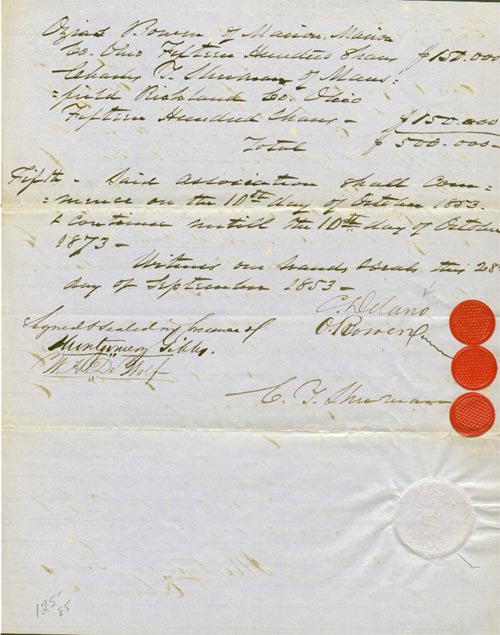 Ozias Bowen of Marion, Marion
Co. Ohio Fifteen Hundred Shares $150.000
Charles T. Sherman of Mans=
=field Richland Co. Ohio
Fifteen Hundred Shares - $150.000
Total $500.000-
Fifth - Said association shall com=
=mence on the 10th day of October 1853.
& continue untill the 10th day of October
1873-
Witness our hands & seals this 28
day of September 1853-
C Delano
Signed & sealed in presence of
O. Bowen
Montgomery Gibbs.
W. H. De Wolf
C. T. Sherman
125